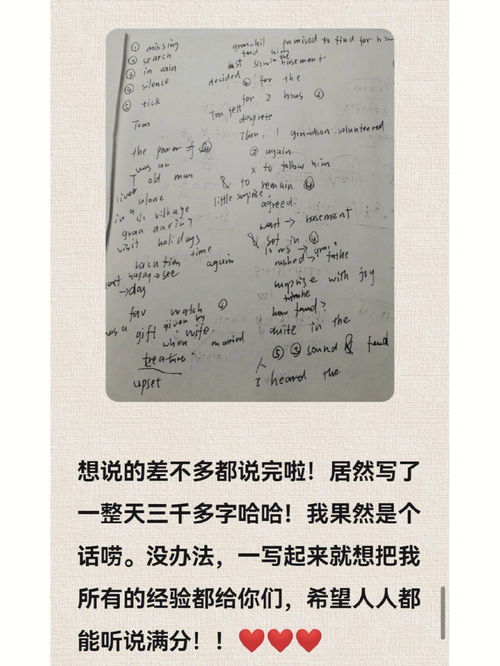 ① missing
② search
③ in vain
④ silence
⑤ tick
Tom
the power of
was an
T old man
lives alone
in a village
gran during
visit holidays
vacation time
again
happy → see
→ day
fav watch ①
was a gift given by
wife
when married
treature
upset
promised to find for him
find him
basement
decided ② for the
for 2 hous ③
Tom felt
desprete
Then, 1 grandson volunteered
② again
x to follow him
& to remain ④
little surprise
agreed.
want → basement
& set in ④
rushed →
surprise with joy
how found?
quite in the
⑤ ⑤ sound & find
人
I heard the
想说的差不多都说完啦！居然写了
一整天三千多字哈哈！我果然是个
话唠。没办法，一写起来就想把我
所有的经验都给你们，希望人人都
能听说满分！！❤️❤️❤️